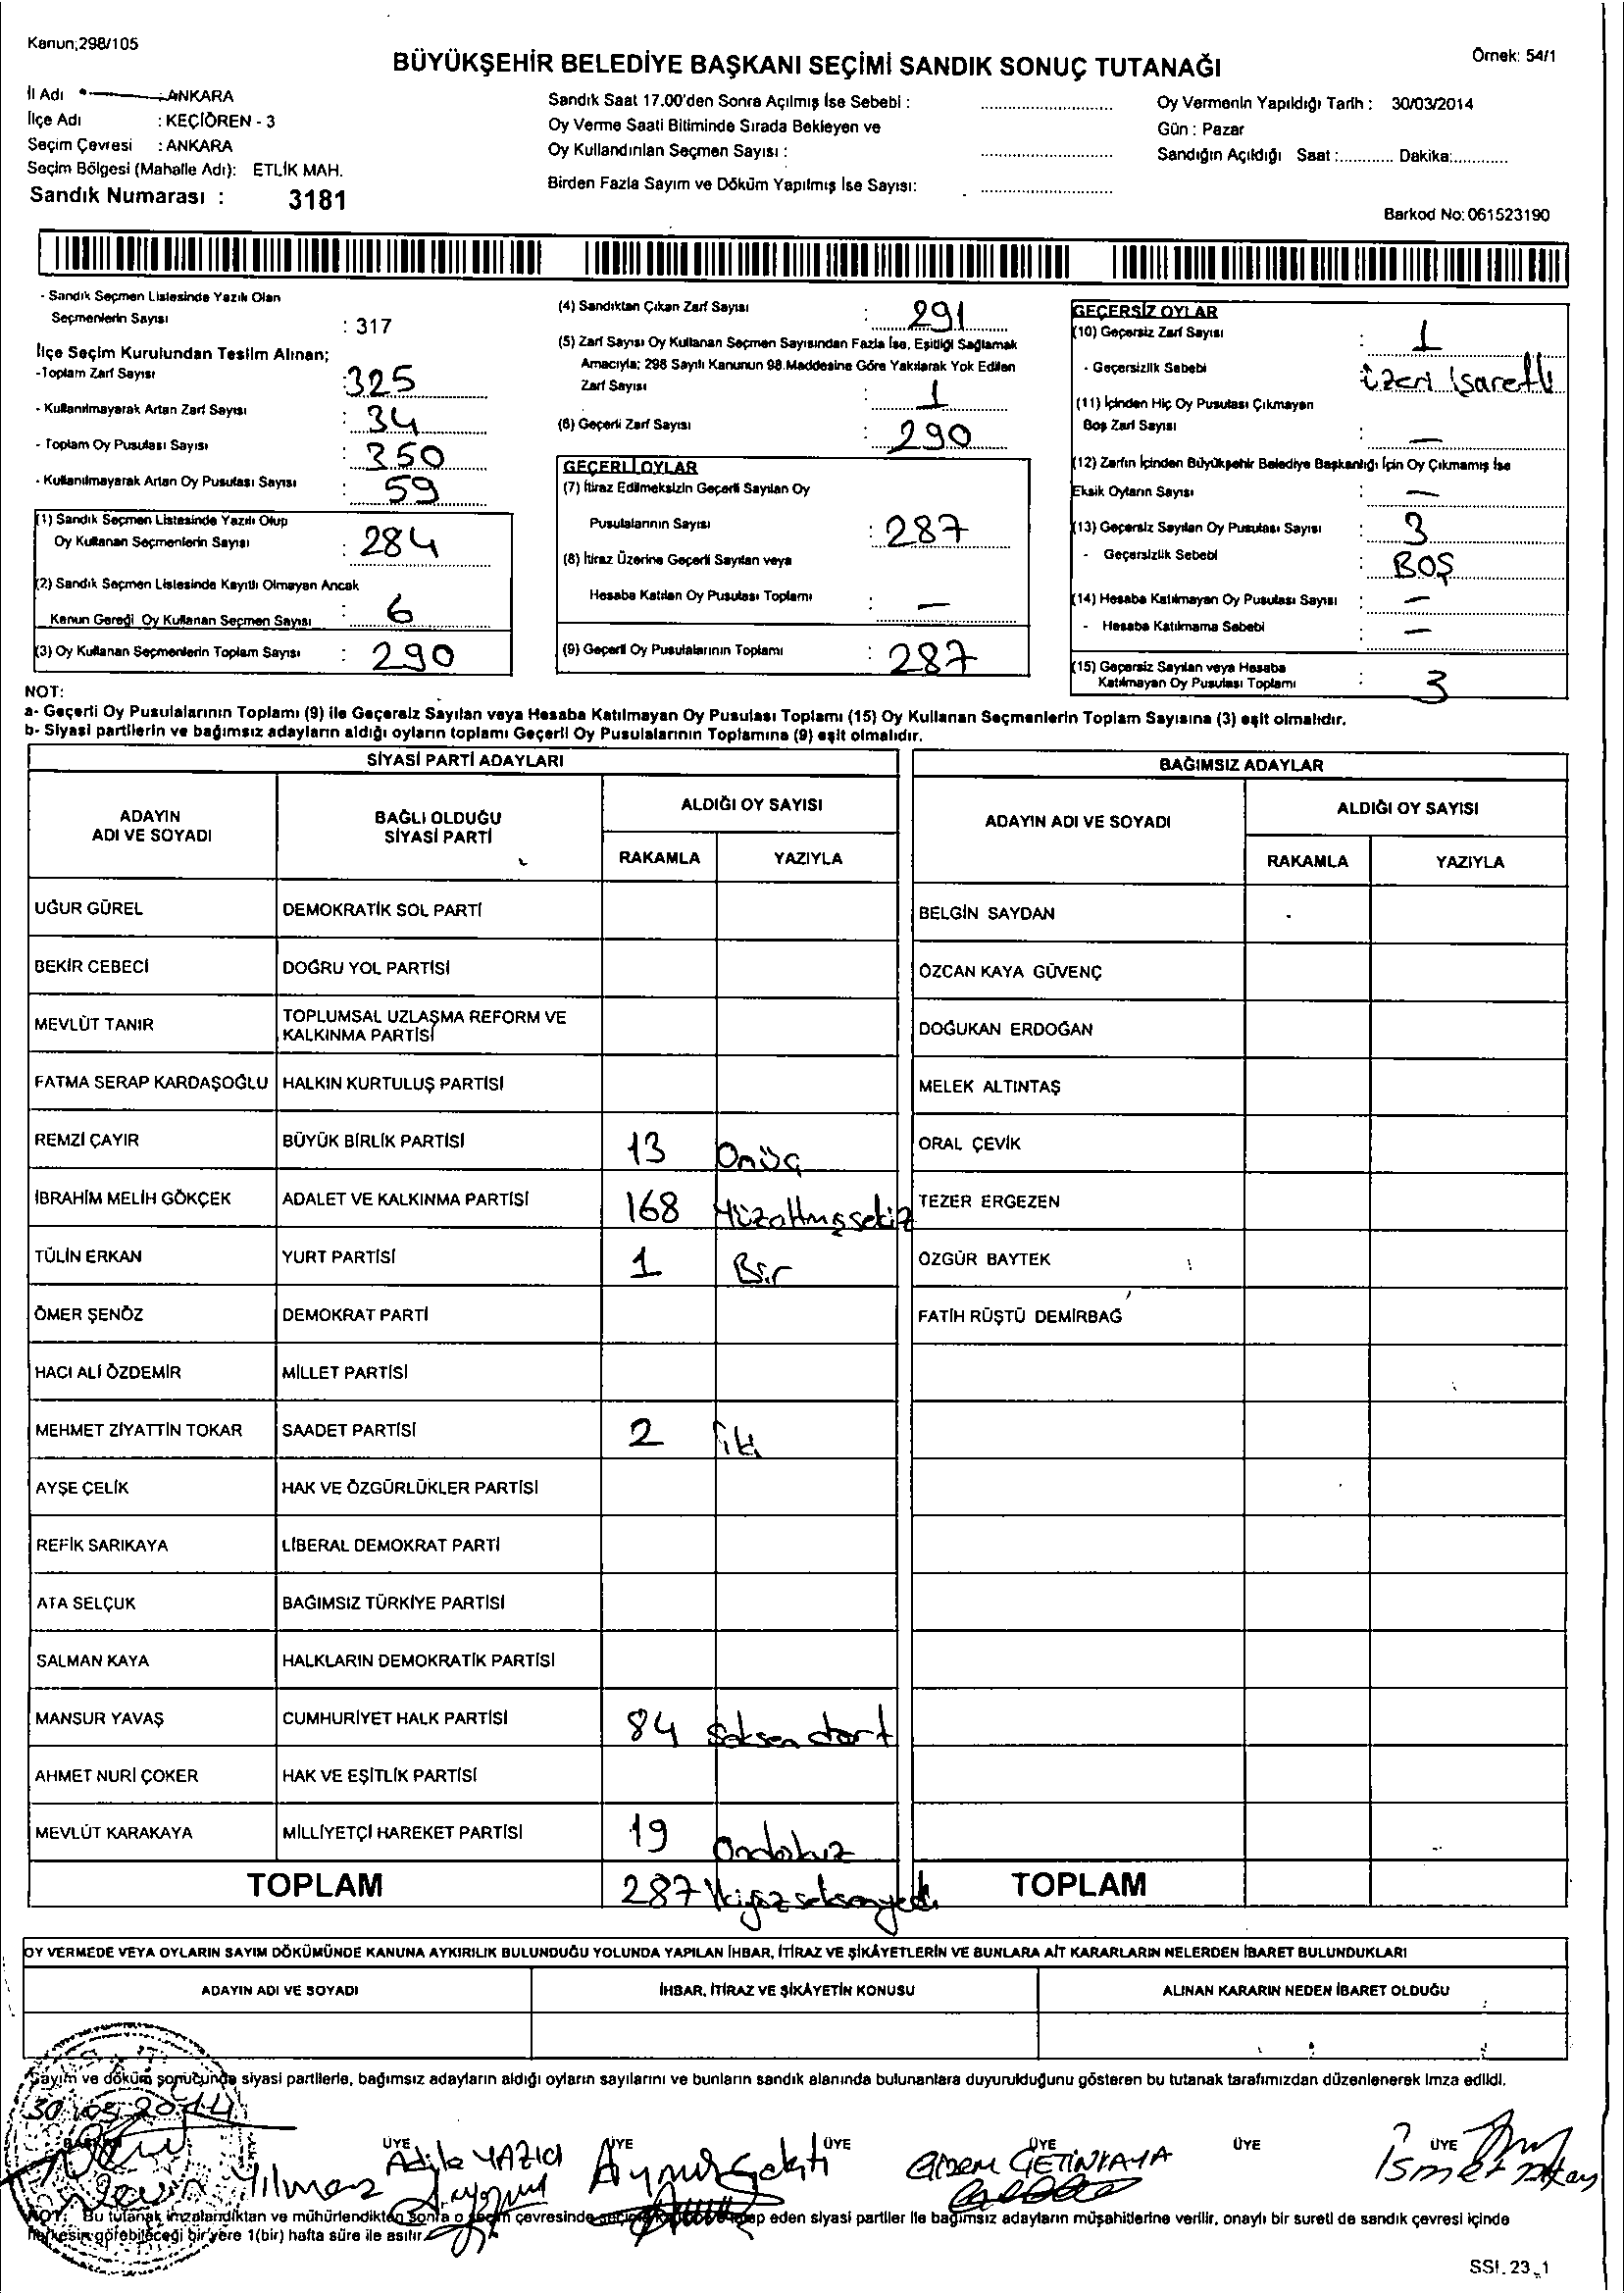 Kanun;298/105
Örnek: 54/1
BÜYÜKŞEHİR BELEDİYE BAŞKANI SEÇİMİ SANDIK SONUÇ TUTANAĞI
İl Adı : ANKARA
İlçe Adı : KEÇİÖREN - 3
Seçim Çevresi : ANKARA
Seçim Bölgesi (Mahalle Adı): ETLİK MAH.
Sandık Numarası : 3181
Sandık Saat 17.00'den Sonra Açılmış İse Sebebi :
Oy Verme Saati Bitiminde Sırada Bekleyen ve
Oy Kullandırılan Seçmen Sayısı :
Birden Fazla Sayım ve Döküm Yapılmış İse Sayısı:
Oy Vermenin Yapıldığı Tarih : 30/03/2014
Gün : Pazar
Sandığın Açıldığı Saat :............ Dakika:............
Barkod No: 061523190
- Sandık Seçmen Listesinde Yazılı Olan
Seçmenlerin Sayısı : 317
İlçe Seçim Kurulundan Teslim Alınan;
-Toplam Zarf Sayısı : 325
- Kullanılmayarak Artan Zarf Sayısı : 34
- Toplam Oy Pusulası Sayısı : 350
- Kullanılmayarak Artan Oy Pusulası Sayısı : 59
(1) Sandık Seçmen Listesinde Yazılı Olup
Oy Kullanan Seçmenlerin Sayısı : 284
(2) Sandık Seçmen Listesinde Kayıtlı Olmayan Ancak
Kanun Gereği Oy Kullanan Seçmen Sayısı : 6
(3) Oy Kullanan Seçmenlerin Toplam Sayısı : 290
(4) Sandıktan Çıkan Zarf Sayısı : 291
(5) Zarf Sayısı Oy Kullanan Seçmen Sayısından Fazla İse, Eşitliği Sağlamak
Amacıyla; 298 Sayılı Kanunun 98.Maddesine Göre Yakılarak Yok Edilen
Zarf Sayısı : 1
(6) Geçerli Zarf Sayısı : 290
GEÇERLİ OYLAR
(7) İtiraz Edilmeksizin Geçerli Sayılan Oy
Pusulalarının Sayısı : 287
(8) İtiraz Üzerine Geçerli Sayılan veya
Hesaba Katılan Oy Pusulası Toplamı : —
(9) Geçerli Oy Pusulalarının Toplamı : 287
GEÇERSİZ OYLAR
(10) Geçersiz Zarf Sayısı : 1
- Geçersizlik Sebebi : üzeri işaretli
(11) İçinden Hiç Oy Pusulası Çıkmayan
Boş Zarf Sayısı : —
(12) Zarfın İçinden Büyükşehir Belediye Başkanlığı İçin Oy Çıkmamış İse
Eksik Oyların Sayısı : —
(13) Geçersiz Sayılan Oy Pusulası Sayısı : 3
- Geçersizlik Sebebi : BOŞ
(14) Hesaba Katılmayan Oy Pusulası Sayısı : —
- Hesaba Katılmama Sebebi : —
(15) Geçersiz Sayılan veya Hesaba
Katılmayan Oy Pusulası Toplamı : 3
NOT:
a- Geçerli Oy Pusulalarının Toplamı (9) ile Geçersiz Sayılan veya Hesaba Katılmayan Oy Pusulası Toplamı (15) Oy Kullanan Seçmenlerin Toplam Sayısına (3) eşit olmalıdır.
b- Siyasi partilerin ve bağımsız adayların aldığı oyların toplamı Geçerli Oy Pusulalarının Toplamına (9) eşit olmalıdır.
SİYASİ PARTİ ADAYLARI
ADAYIN
ADI VE SOYADI
BAĞLI OLDUĞU
SİYASİ PARTİ
ALDIĞI OY SAYISI
RAKAMLA YAZIYLA
UĞUR GÜREL DEMOKRATİK SOL PARTİ
BEKİR CEBECİ DOĞRU YOL PARTİSİ
MEVLÜT TANIR TOPLUMSAL UZLAŞMA REFORM VE
KALKINMA PARTİSİ
FATMA SERAP KARDAŞOĞLU HALKIN KURTULUŞ PARTİSİ
REMZİ ÇAYIR BÜYÜK BİRLİK PARTİSİ 13 Onüç
İBRAHİM MELİH GÖKÇEK ADALET VE KALKINMA PARTİSİ 168 Yüzaltmışsekiz
TÜLİN ERKAN YURT PARTİSİ 1 Bir
ÖMER ŞENÖZ DEMOKRAT PARTİ
HACI ALİ ÖZDEMİR MİLLET PARTİSİ
MEHMET ZİYATTİN TOKAR SAADET PARTİSİ 2 İki
AYŞE ÇELİK HAK VE ÖZGÜRLÜKLER PARTİSİ
REFİK SARIKAYA LİBERAL DEMOKRAT PARTİ
ATA SELÇUK BAĞIMSIZ TÜRKİYE PARTİSİ
SALMAN KAYA HALKLARIN DEMOKRATİK PARTİSİ
MANSUR YAVAŞ CUMHURİYET HALK PARTİSİ 84 Seksen dört
AHMET NURİ ÇOKER HAK VE EŞİTLİK PARTİSİ
MEVLÜT KARAKAYA MİLLİYETÇİ HAREKET PARTİSİ 19 Ondokuz
TOPLAM 287 İkiyüzseksenyedi
BAĞIMSIZ ADAYLAR
ADAYIN ADI VE SOYADI
ALDIĞI OY SAYISI
RAKAMLA YAZIYLA
BELGİN SAYDAN
ÖZCAN KAYA GÜVENÇ
DOĞUKAN ERDOĞAN
MELEK ALTINTAŞ
ORAL ÇEVİK
TEZER ERGEZEN
ÖZGÜR BAYTEK
FATİH RÜŞTÜ DEMİRBAĞ
TOPLAM
OY VERMEDE VEYA OYLARIN SAYIM DÖKÜMÜNDE KANUNA AYKIRILIK BULUNDUĞU YOLUNDA YAPILAN İHBAR, İTİRAZ VE ŞİKÂYETLERİN VE BUNLARA AİT KARARLARIN NELERDEN İBARET BULUNDUKLARI
ADAYIN ADI VE SOYADI İHBAR, İTİRAZ VE ŞİKÂYETİN KONUSU ALINAN KARARIN NEDEN İBARET OLDUĞU
Sayım ve döküm sonucunda siyasi partilerle, bağımsız adayların aldığı oyların sayılarını ve bunların sandık alanında bulunanlara duyurulduğunu gösteren bu tutanak tarafımızdan düzenlenerek imza edildi.
30.03.2014
ÜYE ÜYE ÜYE ÜYE ÜYE ÜYE
Yılmaz Adile YAZICI Aynur GETİNKAYA İsmet
NOT: Bu tutanak imzalandıktan ve mühürlendikten sonra o seçim çevresinde eden siyasi partiler ile bağımsız adayların müşahitlerine verilir, onaylı bir sureti de sandık çevresi içinde
herkesin görebileceği bir yere 1(bir) hafta süre ile asılır.
SSI. 23_1